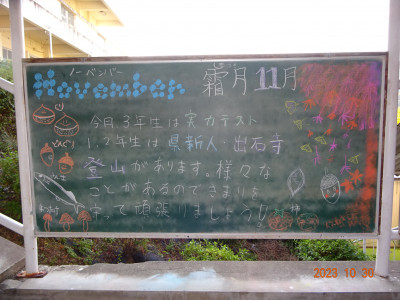 ノーベンバー
November 霜月 11月
今月、3年生は実力テスト
1、2年生は県新人・出石寺
登山があります。様々な
ことがあるのできまりを
守って頑張りましょう!!
2023 10 30